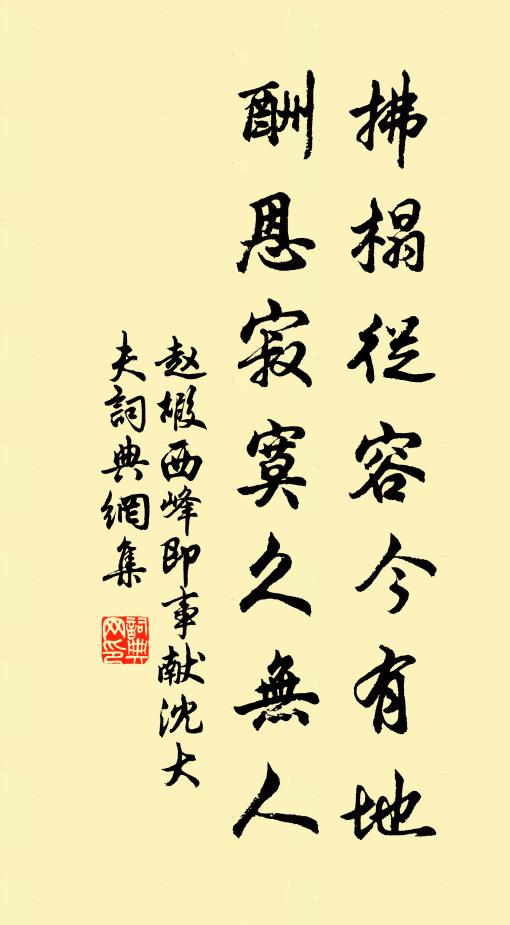 拂榻從容今有地
酬恩寂寞久無人
赵嘏西峰即事献沈大
夫詞典網集
詞典
网印